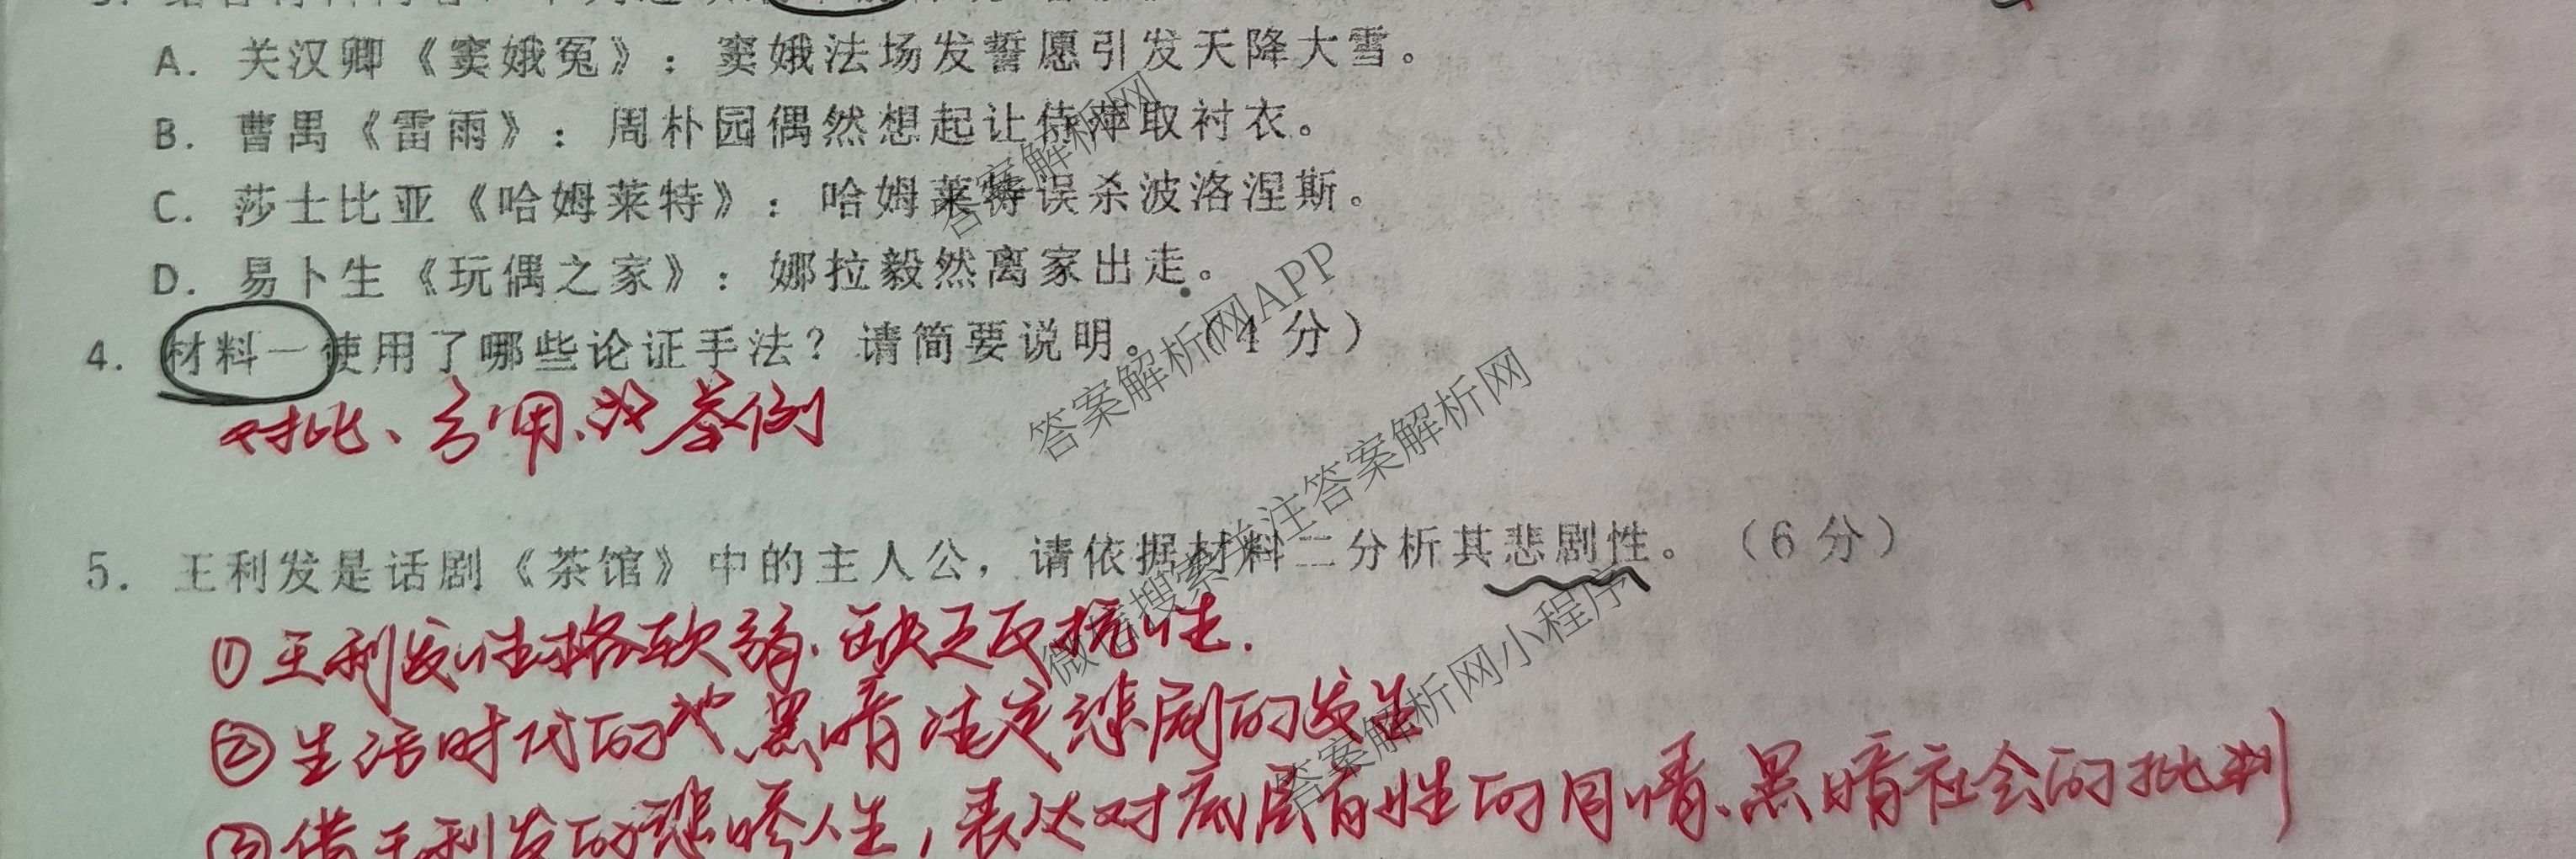 A. 关汉卿《窦娥冤》：窦娥法场发誓愿引发天降大雪。
B. 曹禺《雷雨》：周朴园偶然想起让侍萍取衬衣。
C. 莎士比亚《哈姆莱特》：哈姆莱特误杀波洛涅斯。
D. 易卜生《玩偶之家》：娜拉毅然离家出走。
4. 材料一使用了哪些论证手法？请简要说明。（4分）
对比、引用、举例
5. 王利发是话剧《茶馆》中的主人公，请依据材料二分析其悲剧性。（6分）
①王利发性格软弱、缺乏反抗性.
②生活时代的黑暗注定悲剧的发生
③借王利发的悲惨人生，表达对底层百姓的同情、黑暗社会的批判
答案解析网
答案解析网APP
微信搜索关注答案解析网
答案解析网小程序